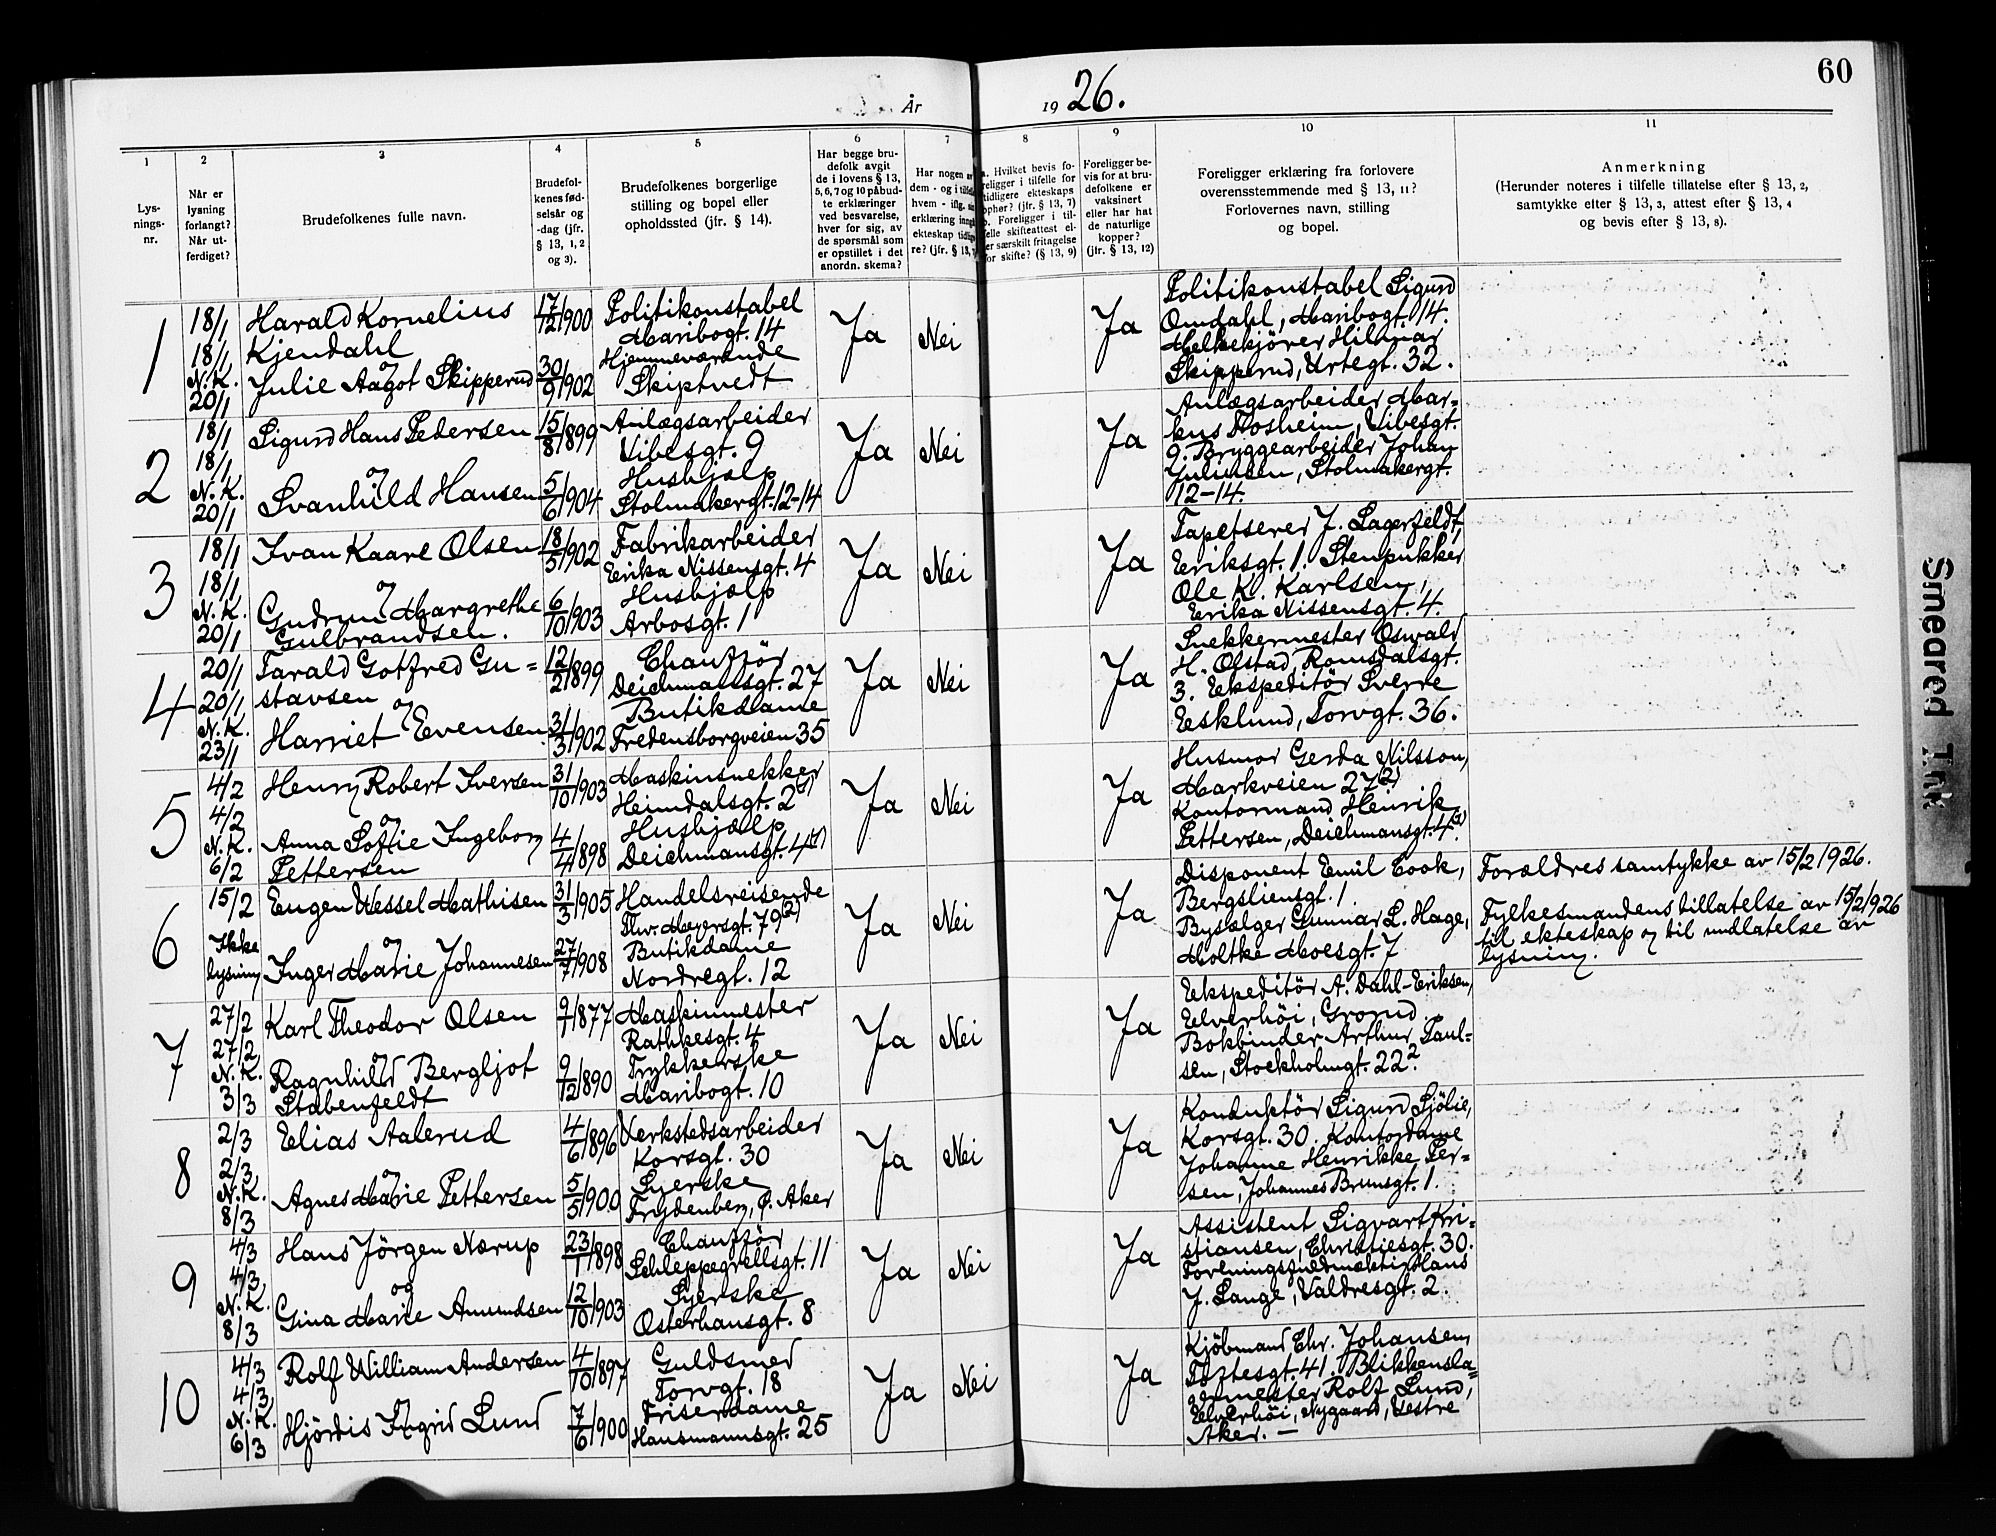 60
År 1926.
1
2
3
4
5
6
7
8
9
10
11
Lys-
nings-
nr.
Når er
lysning
forlangt?
Når ut-
ferdiget?
Brudefolkenes fulle navn.
Brudefol-
kenes fød-
selsår og
-dag (jfr.
§ 13, 1, 2
og 3).
Brudefolkenes borgerlige
stilling og bopel eller
opholdssted (jfr. § 14).
Har begge bru-
defolk avgit
de i lovens § 13,
5, 6, 7 og 10 påbud-
te erklæringer
ved besvarelse,
hver for sig, av
de spørsmål som
er opstillet i det
anordn. skema?
Har nogen
dem - og i
hvem - iflg.
erklæring
ekteskap
re? (jfr. § 13,
a. Hvilket bevis fo-
religger i tilfelle for
tidligere ekteskaps
ophør? (jfr. § 13, 7)
b. Foreligger i til-
felle skifteattest el-
er særskilt fritagelse
for skifte? (§ 13, 9)
Foreligger be-
vis for at bru-
defolkene er
vaksinert
eller har hat
de naturlige
kopper?
(jfr. § 13, 12)
Foreligger erklæring fra forlovere
overensstemmende med § 13, 11?
Forlovernes navn, stilling
og bopel.
Anmerkning
(Herunder noteres i tilfelle tillatelse efter § 13, 2,
samtykke efter § 13, 3, attest efter § 13, 4
og bevis efter § 13, 8).
1
18/1
18/1
N.K.
20/1
Harald Kornelius
Kjendahl
og
Julie Aagot Skipperud
17/12 1900
30/9 1902
Politikonstabel
Maribogt. 14
Hjemmeværende
Skiptvedt
Ja
Nei
Ja
Politikonstabel Sigurd
Omdahl, Maribogt. 14.
Melkekjører Hilmar
Skipperud, Urtegt. 32.
2
18/1
18/1
N.K.
20/1
Sigurd Hans Pedersen
og
Svanhild Hansen
15/8 1899
5/6 1904
Anlægsarbeider
Vibesgt. 9
Hushjælp
Stolmakergt. 12-14
Ja
Nei
Ja
Anlægsarbeider Mar-
kus Mosheim, Vibesgt.
9. Bryggearbeider Johan
Juliussen, Stolmakergt.
12-14.
3
18/1
18/1
N.K.
20/1
Ivan Kaare Olsen
og
Gudrun Margrethe
Gulbrandsen.
18/5 1902
6/10 1903
Fabrikarbeider
Eerika Nissensgt. 4
Hushjælp
Arbosgt. 1
Ja
Nei
Ja
Tapetserer J. Lagerfeldt,
Eriksgt. 1. Stenpukker
Ole K. Karlsen,
Erika Nissensgt. 4.
4
20/1
20/1
N.K.
23/1
Tarald Gotfred Gu=
stavsen
og
Harriet Evensen
12/2 1899
31/3 1902
Chauffør
Deichmannsgt. 27
Butikdame
Fredensborgveien 35
Ja
Nei
Ja
Snekkermester Oswald
H. Olstad, Romsdalsgt.
3. Ekspeditör Sverre
Eesklund, Torvgt. 36.
5
4/2
4/2
N.K.
6/2
Henry Robert Iversen
og
Anna Sofie Ingeborg
Pettersen
31/10 1903
4/4 1898
Maskinsnekker
Heimdalsgt. 2
Hushjælp
Deichmansgt. 4
Ja
Nei
Ja
Husmor Gerda Nilsson,
Markveien 27(2)
Kontormand Henrik
Pettersen, Deichmansgt. 4.
6
15/2
Ikke
lysning
Eugen Wessel Mathisen
og
Inger Marie Johannesen
31/3 1905
27/7 1908
Handelsreisende
Thv. Meyersgt. 79(2)
Butikdame
Nordregt. 12
Ja
Nei
Ja
Disponent Emil Cook,
Bergsliensgt. 1.
Bysælger Gunnar L. Hage,
Moltke Moesgt. 7
Forældres samtykke av 15/2 1926.
Fylkesmandens tillatelse av 15/2 1926
til ekteskap og til undlatelse av
lysning.
7
27/2
27/2
N.K.
3/3
Karl Theodor Olsen
og
Ragnhild Bergljot
Stabenfeldt
9/7 1877
9/12 1890
Maskinmester
Rathkesgt. 4
Trykkerske
Maribogt. 10
Ja
Nei
Ja
Ekspeditör A. Dahl-Eriksen,
Elverhöi, Grorud
Bokbinder Arthur Paul-
sen, Stockholmgt. 22².
8
2/3
2/3
N.K.
8/3
Elias Aalerud
og
Agnes Marie Pettersen
4/6 1896
5/5 1900
Verkstedsarbeider
Korsgt. 30
Syerske
Frydenberg, Ö. Aker
Ja
Nei
Ja
Konduktör Sigurd Sjölie,
Korsgt. 30. Kontordame
Johanne Henrikke Per-
sen, Johannes Brunsgt. 1.
9
4/3
4/3
N.K.
8/3
Hans Jörgen Nærup
og
Gina Marie Amundsen
23/1 1898
12/10 1903
Chauffør
Schleppegrellsgt. 11
Syerske
Osterhausgt. 8
Ja
Nei
Ja
Assistent Sigvart Kri-
stiansen, Christiesgt. 30.
Foreningsfuldmæktig Hans
J. Lange, Valdresgt. 2.
10
4/3
4/3
N.K.
6/3
Rolf William Andersen
og
Hjördis Ingrid Lund
4/10 1897
7/6 1900
Guldsmed
Torvgt. 18
Friserdame
Hausmannsgt. 25
Ja
Nei
Ja
Kjöbmand Chr. Johansen,
Toftesgt. 41. Blikkensla-
germester Rolf Lund,
Elverhöi, Nygaard, Vestre
Aker. —
Smeared Ink